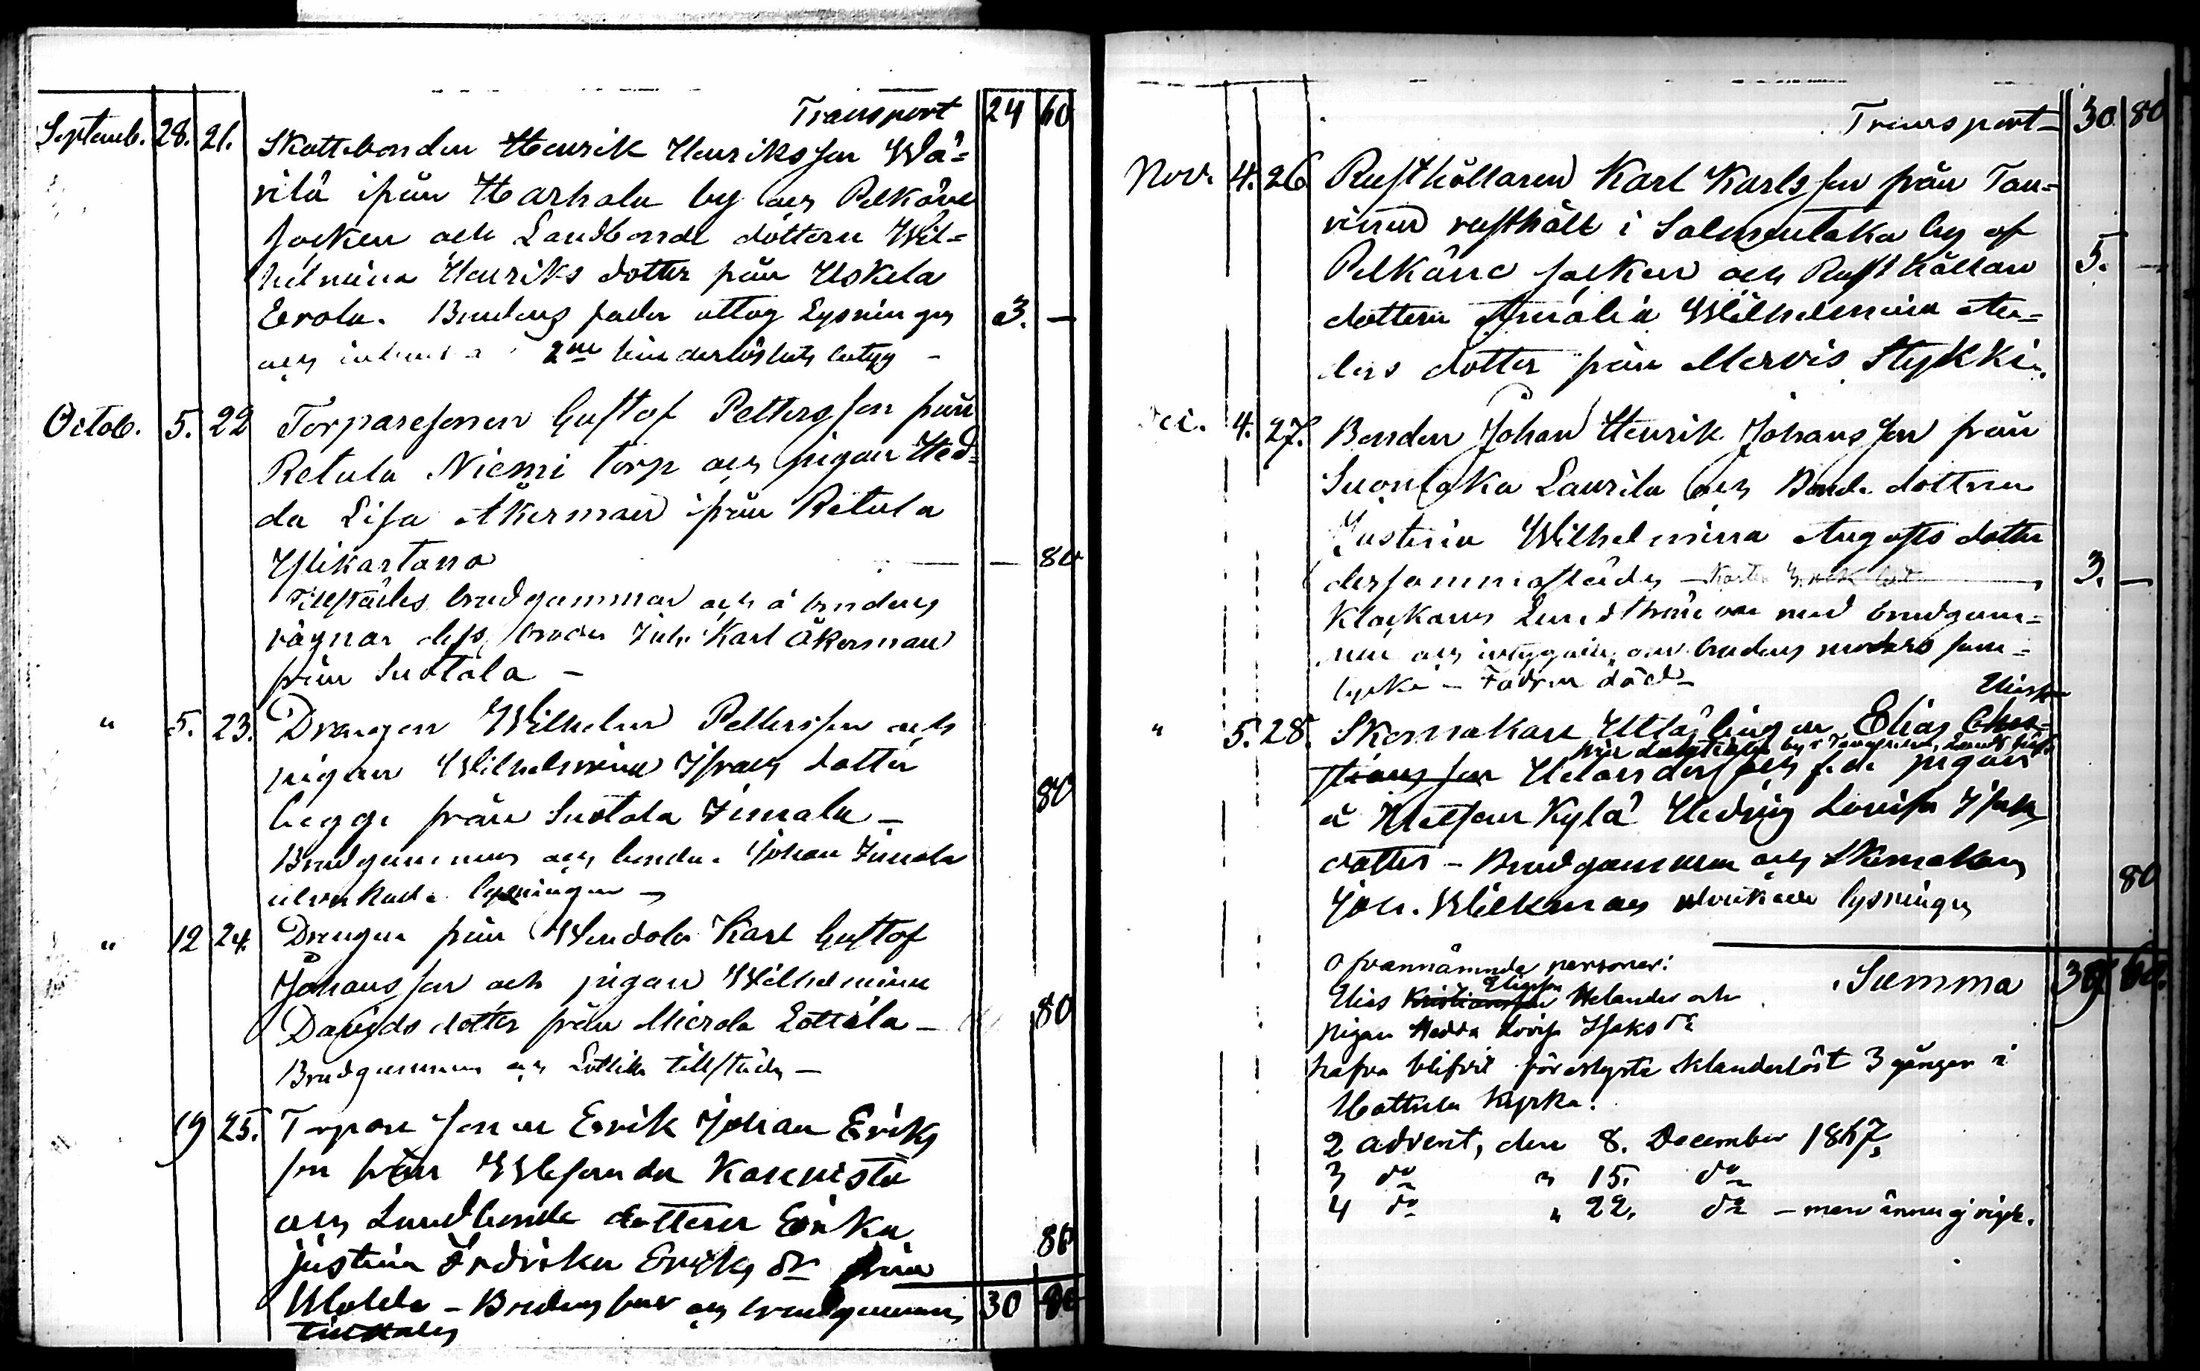 Transport 24 60
Septemb. 28. 21. Skattebonden Henrik Henriksson Wä-
rilä ifrån Harhala by och Pelkäne
socken och Landbonde dottern Wil-
helmina Henriks dotter från Uskela
Erola. Brudens fader uttog Lysningen 3. —
och 2ne hinderlöshets betyg –
Octob. 5. 22 Torparesonen Gustof Pettersson från
Retula Niemi torp och pigan Hed-
da Lisa Åkerman ifrån Retula
Ylikartano — — 80
Tillstädes brudgumman och å brudens
vägnar dess broder Karl Åkerman
från Suotala –
" 5. 23. Drengen Wilhelm Pettersson och
pigan Wilhelmina Isracs dotter
begge från Suotala Jimala – 80
Brudgummen och bonden Johan Jimala
utverkade lysningen –
" 12 24. Drengen från Wendola Karl Gustof
Johansson och pigan Wilhelmina
Davids dotter från Mierola Lottila – 80
Brudgummen och Lottila tillstädes –
19 25. Torpare sonen Erik Johan Eriks
son från Kankisto
och Landbonde dottern Erika
Justina Fredrika Eriks dr från 80
– Brudens far och brudgummen 30 80
tillstädes
Transport 30 80
Nov. 4. 26 Rusthållaren Karl Karlsson från Tau-
rinen rusthåll i Salmentaka by af
Pelkäne socken och Rusthållare 5. —
dottern Amalia Wilhelmina An-
ders dotter från Mervis Stykki.
4. 27. Bonden Johan Henrik Johansson från
Suontaka Laurila och Bonde dottern
Justina Wilhelmina Augusts dotter
dersammastädes 3. —
Klockaren Lundström var med brudgum-
men och intygade om brudens moders sam-
tycke – Fadren död –
Eliasson
" 5. 28. Skomakare Utlärlingen Elias Chri-
från by i
stiansson Helander och f.d. pigan
å Metsänkylä Hedvig Lovisa Isaks
dotter – Brudgummen och Skomakaren 80
Joh. Wilkman utverkade lysningen
Ofvannämnde personer: Summa 39 60.
Eliasson
Elias Kristiansson Helander och
pigan Hedda Lovisa Isaks dr
hafva blifvit förelyste klanderlöst 3 gånger i
Hattula Kyrka:
2 advent, den 8. December 1867,
3 do " 15. do
4 do " 22. do – men ännu ej vigde.